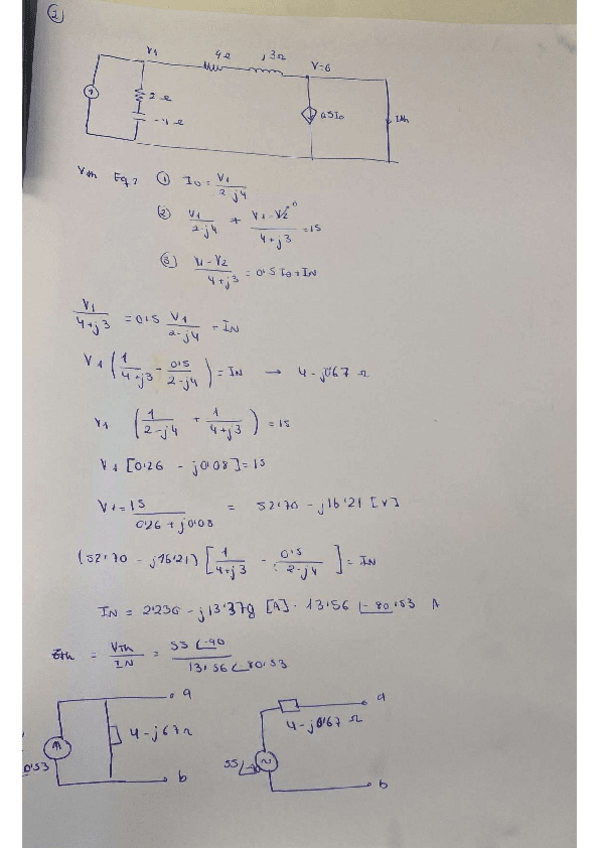 1
V1 4Ω j3Ω V=0
2Ω
-j4Ω
0.5Io
IN
Vth Eq, ① Io = V1 / 2-j4
② V1 / 2-j4 + V1-V2 / 4+j3 = 15
0
③ V1-V2 / 4+j3 = 0'5 Io + IN
V1 / 4+j3 = 0'5 V1 / 2-j4 + IN
V1 ( 1 / 4+j3 - 0'5 / 2-j4 ) = IN → 4-j0'67 Ω
V1 ( 1 / 2-j4 + 1 / 4+j3 ) = 15
V1 [0'26 - j0'08] = 15
V1 = 15 / 0'26 + j0'08 = 52'70 - j16'21 [V]
(52'70 - j16'21) [ 1 / 4+j3 - 0'5 / 2-j4 ] = IN
IN = 2'236 - j13'378 [A] · 13'56 ∠-80'53 A
Zth = Vth / IN = 55 ∠-90 / 13'56 ∠-80'53
a a
4-j67Ω 4-j0'67 Ω
0'53 55
b b